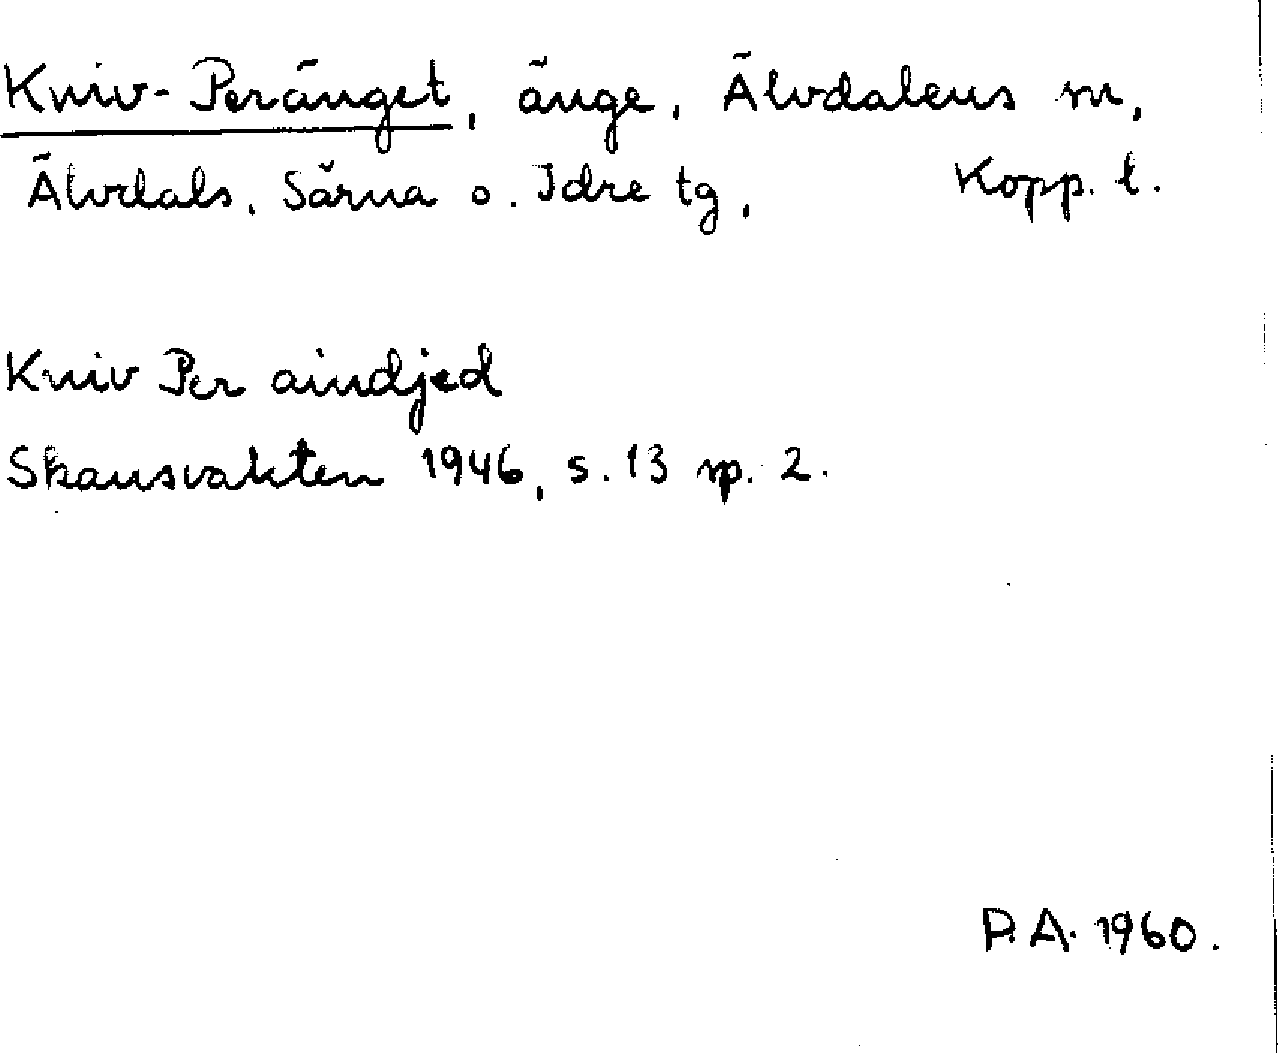 Kniv-Peränget, änge, Älvdalens m,
Älvdals, Särna o. Idre tg, Kopp. l.
Kniv Per aindjed
Skansvakten 1946, s. 13 sp. 2.
P.A. 1960.